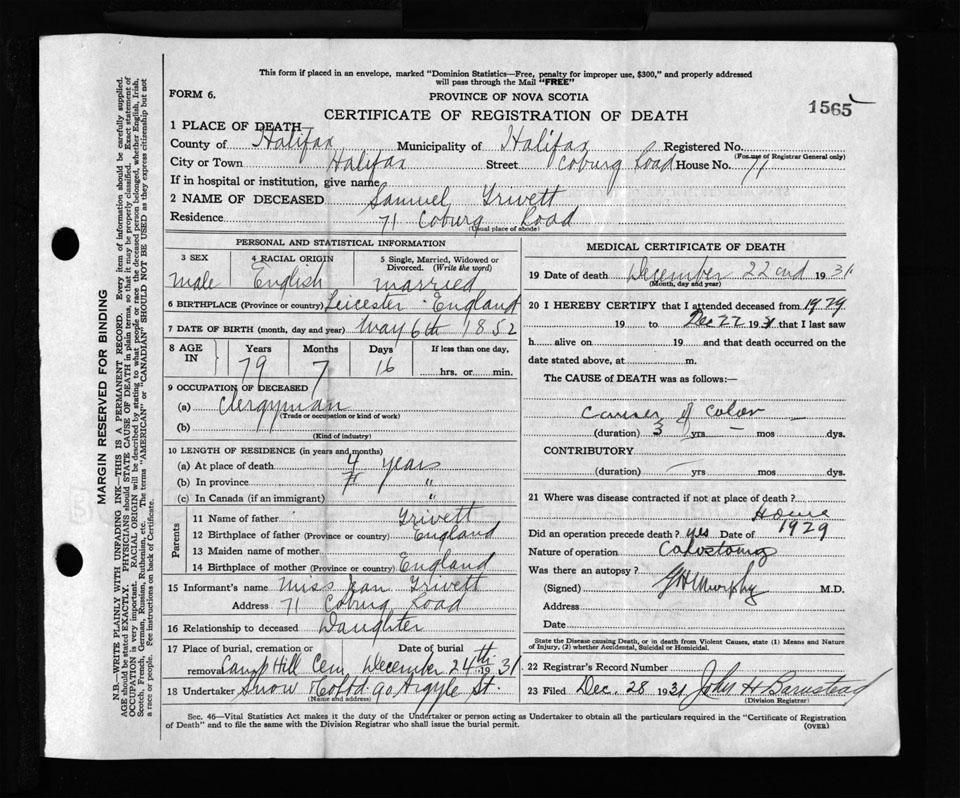 This form if placed in an envelope, marked "Dominion Statistics—Free, penalty for improper use, $300," and properly addressed
will pass through the Mail "FREE"
FORM 6.
PROVINCE OF NOVA SCOTIA
1565
CERTIFICATE OF REGISTRATION OF DEATH
1 PLACE OF DEATH—
County of Halifax Municipality of Halifax Registered No.
(For use of Registrar General only)
City or Town Halifax Street Coburg Road House No. 71
If in hospital or institution, give name
2 NAME OF DECEASED Samuel Trivett
Residence 71 Coburg Road
(Usual place of abode)
PERSONAL AND STATISTICAL INFORMATION
3 SEX 4 RACIAL ORIGIN 5 Single, Married, Widowed or
Divorced. (Write the word)
male English married
6 BIRTHPLACE (Province or country) Leicester England
7 DATE OF BIRTH (month, day and year) May 6th 1852
8 AGE IN Years Months Days If less than one day,
79 7 16 hrs. or min.
9 OCCUPATION OF DECEASED
(a) Clergyman
(Trade or occupation or kind of work)
(b)
(Kind of industry)
10 LENGTH OF RESIDENCE (in years and months)
(a) At place of death 4 years
(b) In province "
(c) In Canada (if an immigrant) "
Parents
11 Name of father Trivett
12 Birthplace of father (Province or country) England
13 Maiden name of mother
14 Birthplace of mother (Province or country) England
15 Informant's name Miss Jean Trivett
Address 71 Coburg Road
16 Relationship to deceased Daughter
17 Place of burial, cremation or Date of burial
removal Camp Hill Cem December 24th 1931
18 Undertaker Snow & Co Ltd 90 Argyle St.
(Name and address)
MEDICAL CERTIFICATE OF DEATH
19 Date of death December 22nd 1931
(Month, day and year)
20 I HEREBY CERTIFY that I attended deceased from 1929
19 to Dec 22 1931 that I last saw
h alive on 19 and that death occurred on the
date stated above, at m.
The CAUSE of DEATH was as follows:—
Cancer of Colon
(duration) 3 yrs – mos dys.
CONTRIBUTORY
(duration) – yrs mos dys.
21 Where was disease contracted if not at place of death?
Home
Did an operation precede death? yes Date of 1929
Nature of operation Colostomy
Was there an autopsy?
(Signed) G H Murphy M.D.
Address
Date
State the Disease causing Death, or in death from Violent Causes, state (1) Means and Nature
of Injury, (2) whether Accidental, Suicidal or Homicidal.
22 Registrar's Record Number
23 Filed Dec 28 1931 John H Barnstead
(Division Registrar)
Sec. 46—Vital Statistics Act makes it the duty of the Undertaker or person acting as Undertaker to obtain all the particulars required in the "Certificate of Registration
of Death" and to file the same with the Division Registrar who shall issue the burial permit.
(OVER)
MARGIN RESERVED FOR BINDING
N.B.—WRITE PLAINLY WITH UNFADING INK—THIS IS A PERMANENT RECORD. Every item of information should be carefully supplied.
AGE should be stated EXACTLY. PHYSICIANS should STATE CAUSE OF DEATH in plain terms, so that it may be properly classified. Exact statement of
OCCUPATION is very important. RACIAL ORIGIN will be described by stating to what people or race the deceased person belonged, whether English, Irish,
Scotch, French, German, Russian, Ruthenian, etc. The terms "AMERICAN" or "CANADIAN" SHOULD NOT BE USED as they express citizenship but not
a race or people. See instructions on back of Certificate.